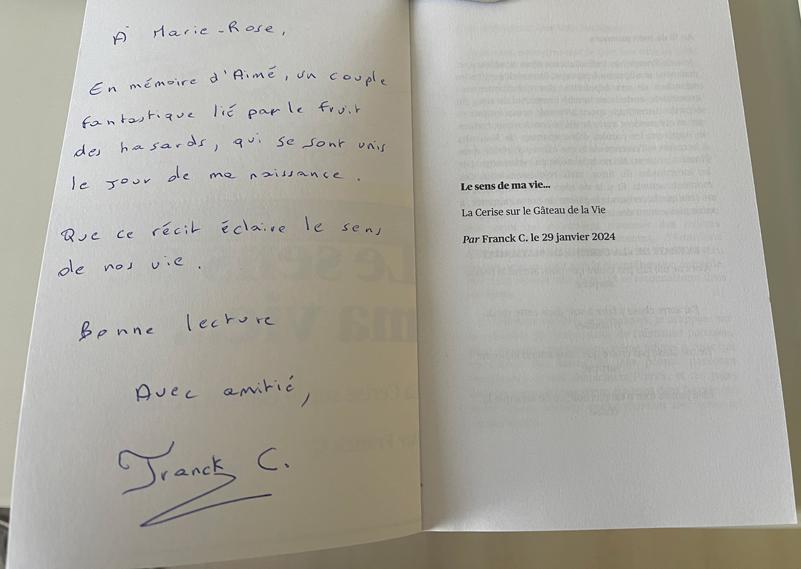 À Marie-Rose,
En mémoire d'Aimé, un couple
fantastique lié par le fruit
des hasards, qui se sont unis
le jour de ma naissance.
Que ce récit éclaire le sens
de nos vie.
Bonne lecture
Avec amitié,
Franck C.
Le sens de ma vie...
La Cerise sur le Gâteau de la Vie
Par Franck C. le 29 janvier 2024